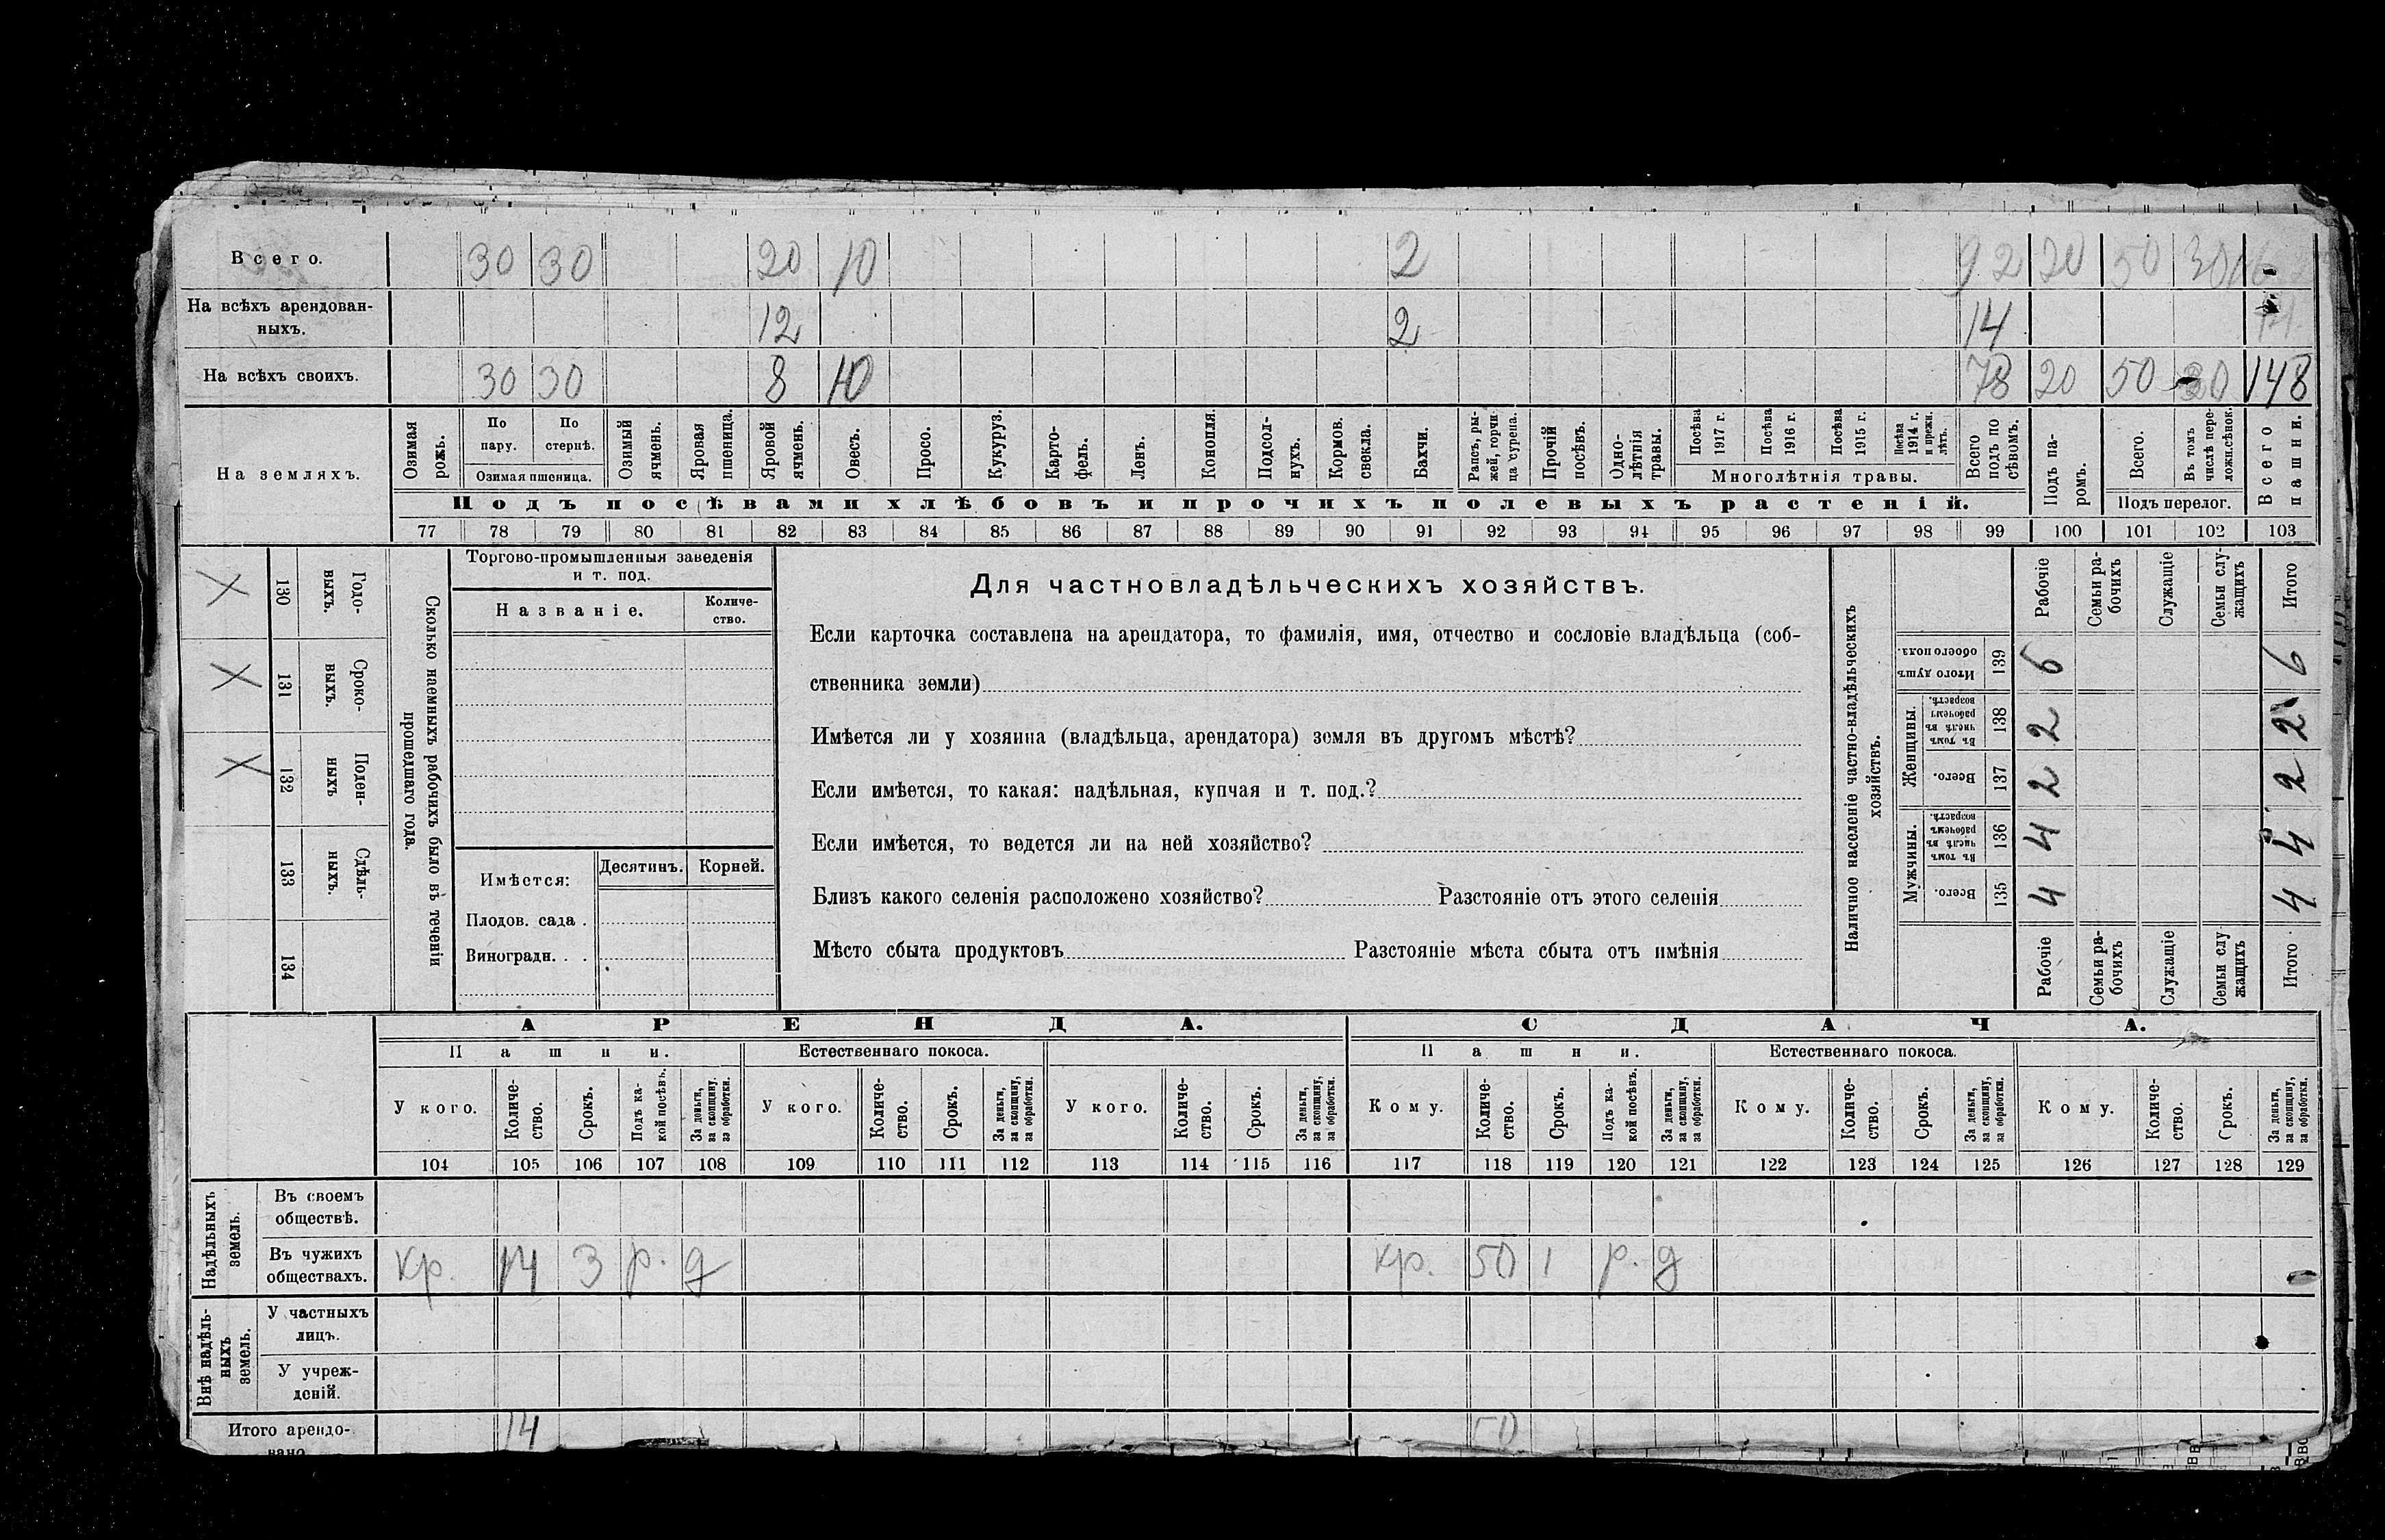 Всего. 30 30 20 10 2 92 20 50 30
На всѣхъ арендован-
ныхъ. 12 2 14 14
На всѣхъ своихъ. 30 30 8 10 78 20 50 30 148
На земляхъ.
Озимая рожь.
По пару.
По стернѣ.
Озимая пшеница.
Озимый ячмень.
Яровая пшеница.
Яровой ячмень.
Овесъ.
Просо.
Кукуруз.
Карто-
фель.
Ленъ.
Конопля.
Подсол-
нухъ.
Кормов. свекла.
Бахчи.
Рапсъ, ры-
жей, горчи-
ца, сурепа.
Прочій посѣвъ.
Одно-
лѣтнія травы.
Посѣва 1917 г.
Посѣва 1916 г.
Посѣва 1915 г.
Посѣва 1914 г. и прежн. лѣтъ.
Многолѣтнія травы.
Всего подъ по сѣвомъ.
Подъ посѣвами хлѣбовъ и прочихъ полевыхъ растеній.
Подъ па-
ромъ.
Всего.
Въ томъ числѣ пере-
ложн.сѣнок.
Подъ перелог.
Всего пашни.
77 78 79 80 81 82 83 84 85 86 87 88 89 90 91 92 93 94 95 96 97 98 99 100 101 102 103
Х 130 Годо-
выхъ.
Х 131 Сроко-
выхъ.
Х 132 Поден-
ныхъ
133 Сдѣль-
ныхъ.
134
Сколько наемныхъ рабочихъ было въ теченіи
прошедшаго года.
Торгово-промышленныя заведенія
и т. под.
Названіе.
Количе-
ство.
Имѣется: Десятинъ. Корней.
Плодов. сада .
Виноградн. . .
Для частновладѣльческихъ хозяйствъ.
Если карточка составлена на арендатора, то фамилія, имя, отчество и сословіе владѣльца (соб-
ственника земли)
Имѣется ли у хозяина (владѣльца, арендатора) земля въ другомъ мѣстѣ?
Если имѣется, то какая: надѣльная, купчая и т. под.?
Если имѣется, то ведется ли на ней хозяйство?
Близъ какого селенія расположено хозяйство? Разстояніе отъ этого селенія
Мѣсто сбыта продуктовъ Разстояніе мѣста сбыта отъ имѣнія
Наличное населеніе частно-владѣльческихъ
хозяйствъ.
Рабочіе
Семьи ра-
бочихъ
Служащіе
Семьи слу-
жащихъ
Итого
Итого душъ обоего пола. 139 6 6
Женщины.
Въ томъ числѣ въ рабочемъ возрастѣ. 138 2 2
Всего. 137 2 2
Мужчины.
Въ томъ числѣ въ рабочемъ возрастѣ. 136 4 4
Всего. 135 4 4
Рабочіе
Семьи ра-
бочихъ
Служащіе
Семьи слу
жащихъ
Итого
АРЕНДА. СДАЧА.
Пашни. Естественнаго покоса. Пашни. Естественнаго покоса.
У кого.
Количе-
ство.
Срокъ.
Подъ ка-
кой посѣвъ.
За деньги,
за скопщину,
за обработки.
У кого.
Количе-
ство.
Срокъ.
За деньги,
за скопщину,
за обработки.
У кого.
Количе-
ство.
Срокъ.
За деньги,
за скопщину,
за обработки.
Кому.
Количе-
ство.
Срокъ.
Подъ ка-
кой посѣвъ.
За деньги,
за скопщину,
за обработки.
Кому.
Количе-
ство.
Срокъ.
За деньги,
за скопщину,
за обработки.
Кому.
Количе-
ство.
Срокъ.
За деньги,
за скопщину,
за обработки.
104 105 106 107 108 109 110 111 112 113 114 115 116 117 118 119 120 121 122 123 124 125 126 127 128 129
Надѣльныхъ
земель.
Въ своемъ
обществѣ.
Въ чужихъ
обществахъ. кр. 14 3 р. д кр. 50 1 р. д
Внѣ надѣль-
ныхъ
земель.
У частныхъ
лицъ.
У учреж-
деній.
Итого арендо-
вано 14 50